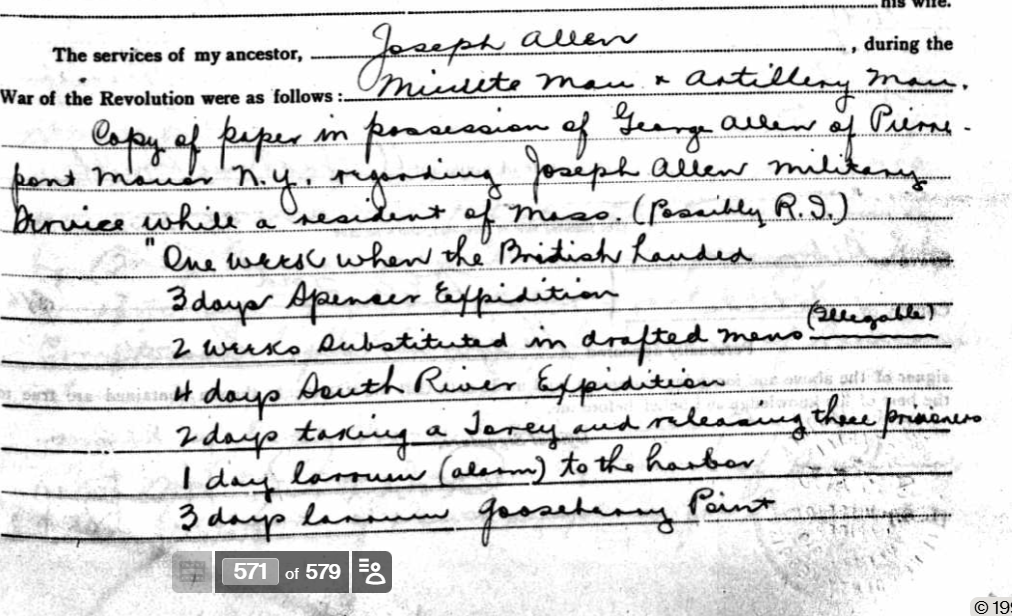 his wife.
The services of my ancestor, Joseph Allen, during the
War of the Revolution were as follows: Minute Man & Artillery Man.
Copy of paper in possession of George Allen of Pierre-
pont Manor N.Y. regarding Joseph Allen military
Service while a resident of Mass. (Possibly R.I.)
"One week when the British landed
3 days Spenser Expidition
2 weeks Substituted in drafted mens (Illegable)
4 days South River Expidition
2 days taking a Torey and releasing three prisioners
1 day larrum (alarm) to the harbor
3 days larrum Gooseberry Point
571 of 579
© 199